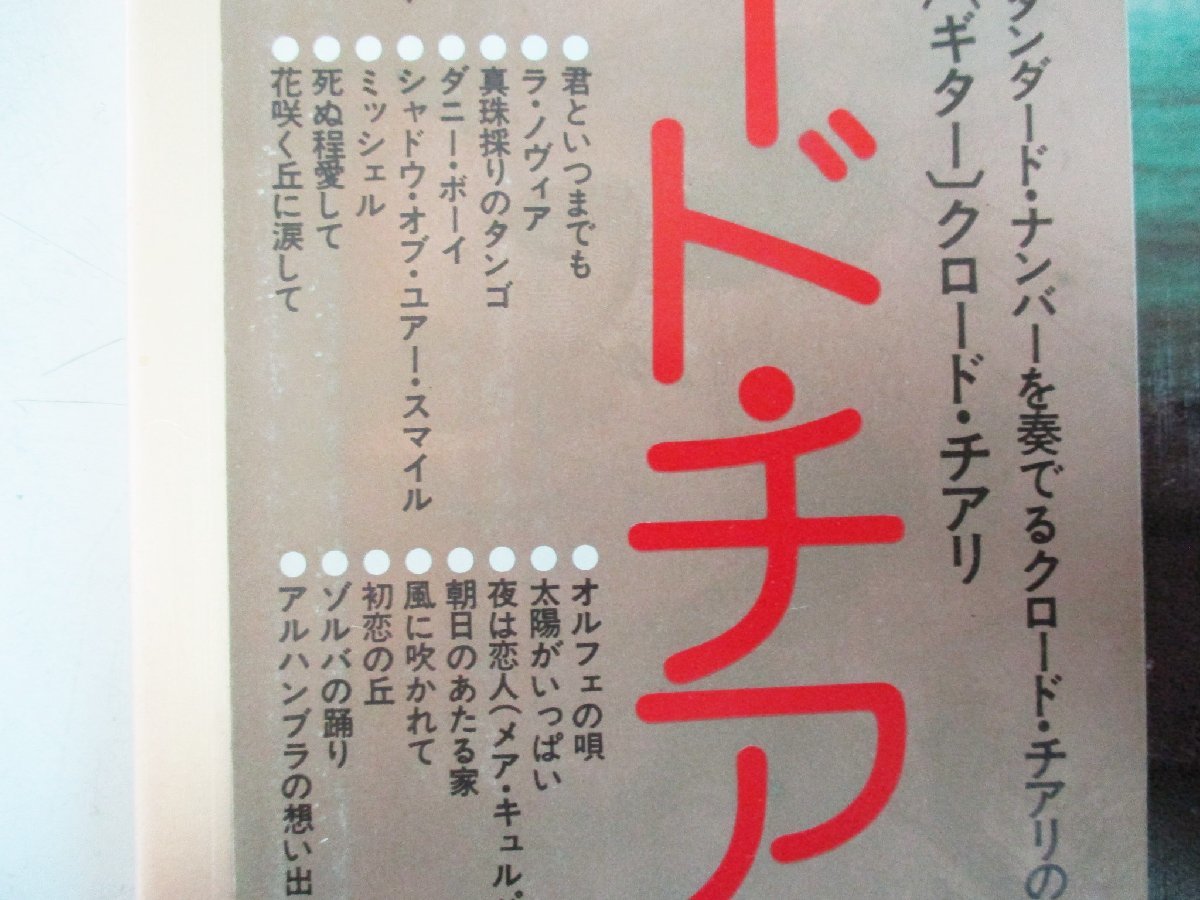 タンダード・ナンバーを奏でるクロード・チアリの
ギター〕クロード・チアリ
ード・チア
君といつまでも
ラ・ノヴィア
真珠採りのタンゴ
ダニー・ボーイ
シャドウ・オブ・ユアー・スマイル
ミッシェル
死ぬ程愛して
花咲く丘に涙して
オルフェの唄
太陽がいっぱい
夜は恋人(メア・キュル
朝日のあたる家
風に吹かれて
初恋の丘
ゾルバの踊り
アルハンブラの想い出